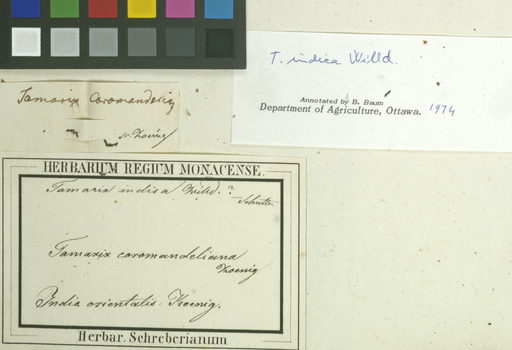 T. indica Willd.
Annotated by B. Baum
Department of Agriculture, Ottawa. 1974
Tamarix Coromandelia
HERBARIUM REGIUM MONACENSE.
Tamarix indica Willd. ?
Tamarix coromandeliana
Koenig
India orientalis. Koenig.
Herbar. Schreberianum